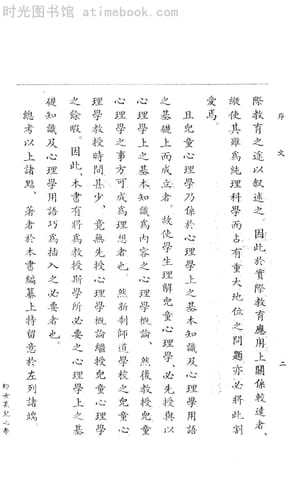 时光图书馆 atimebook.com
序文
二
際教育之途以叙述之。因此於實際教育應用上關係較遠者、
縱使其雖爲純理科學而占有重大地位之問題亦必將此割
愛焉。
且兒童心理學乃係於心理學上之基本知識及心理學用語
之基礎上而成立者。故使學生理解兒童心理學、必先授與以
心理學上之基本知識爲內容之心理學概論、然後教授兒童
心理學之事方可成爲理想者也。然新制師道學校之兒童心
理學教授時間甚少、竟無先授心理學概論繼授兒童心理學
之餘暇。因此、本書有將爲教授斯學所必要之心理學上之基
礎知識及心理學用語巧爲插入之必要者也。
總考以上諸點、著者於本書編纂上特留意於左列諸端。